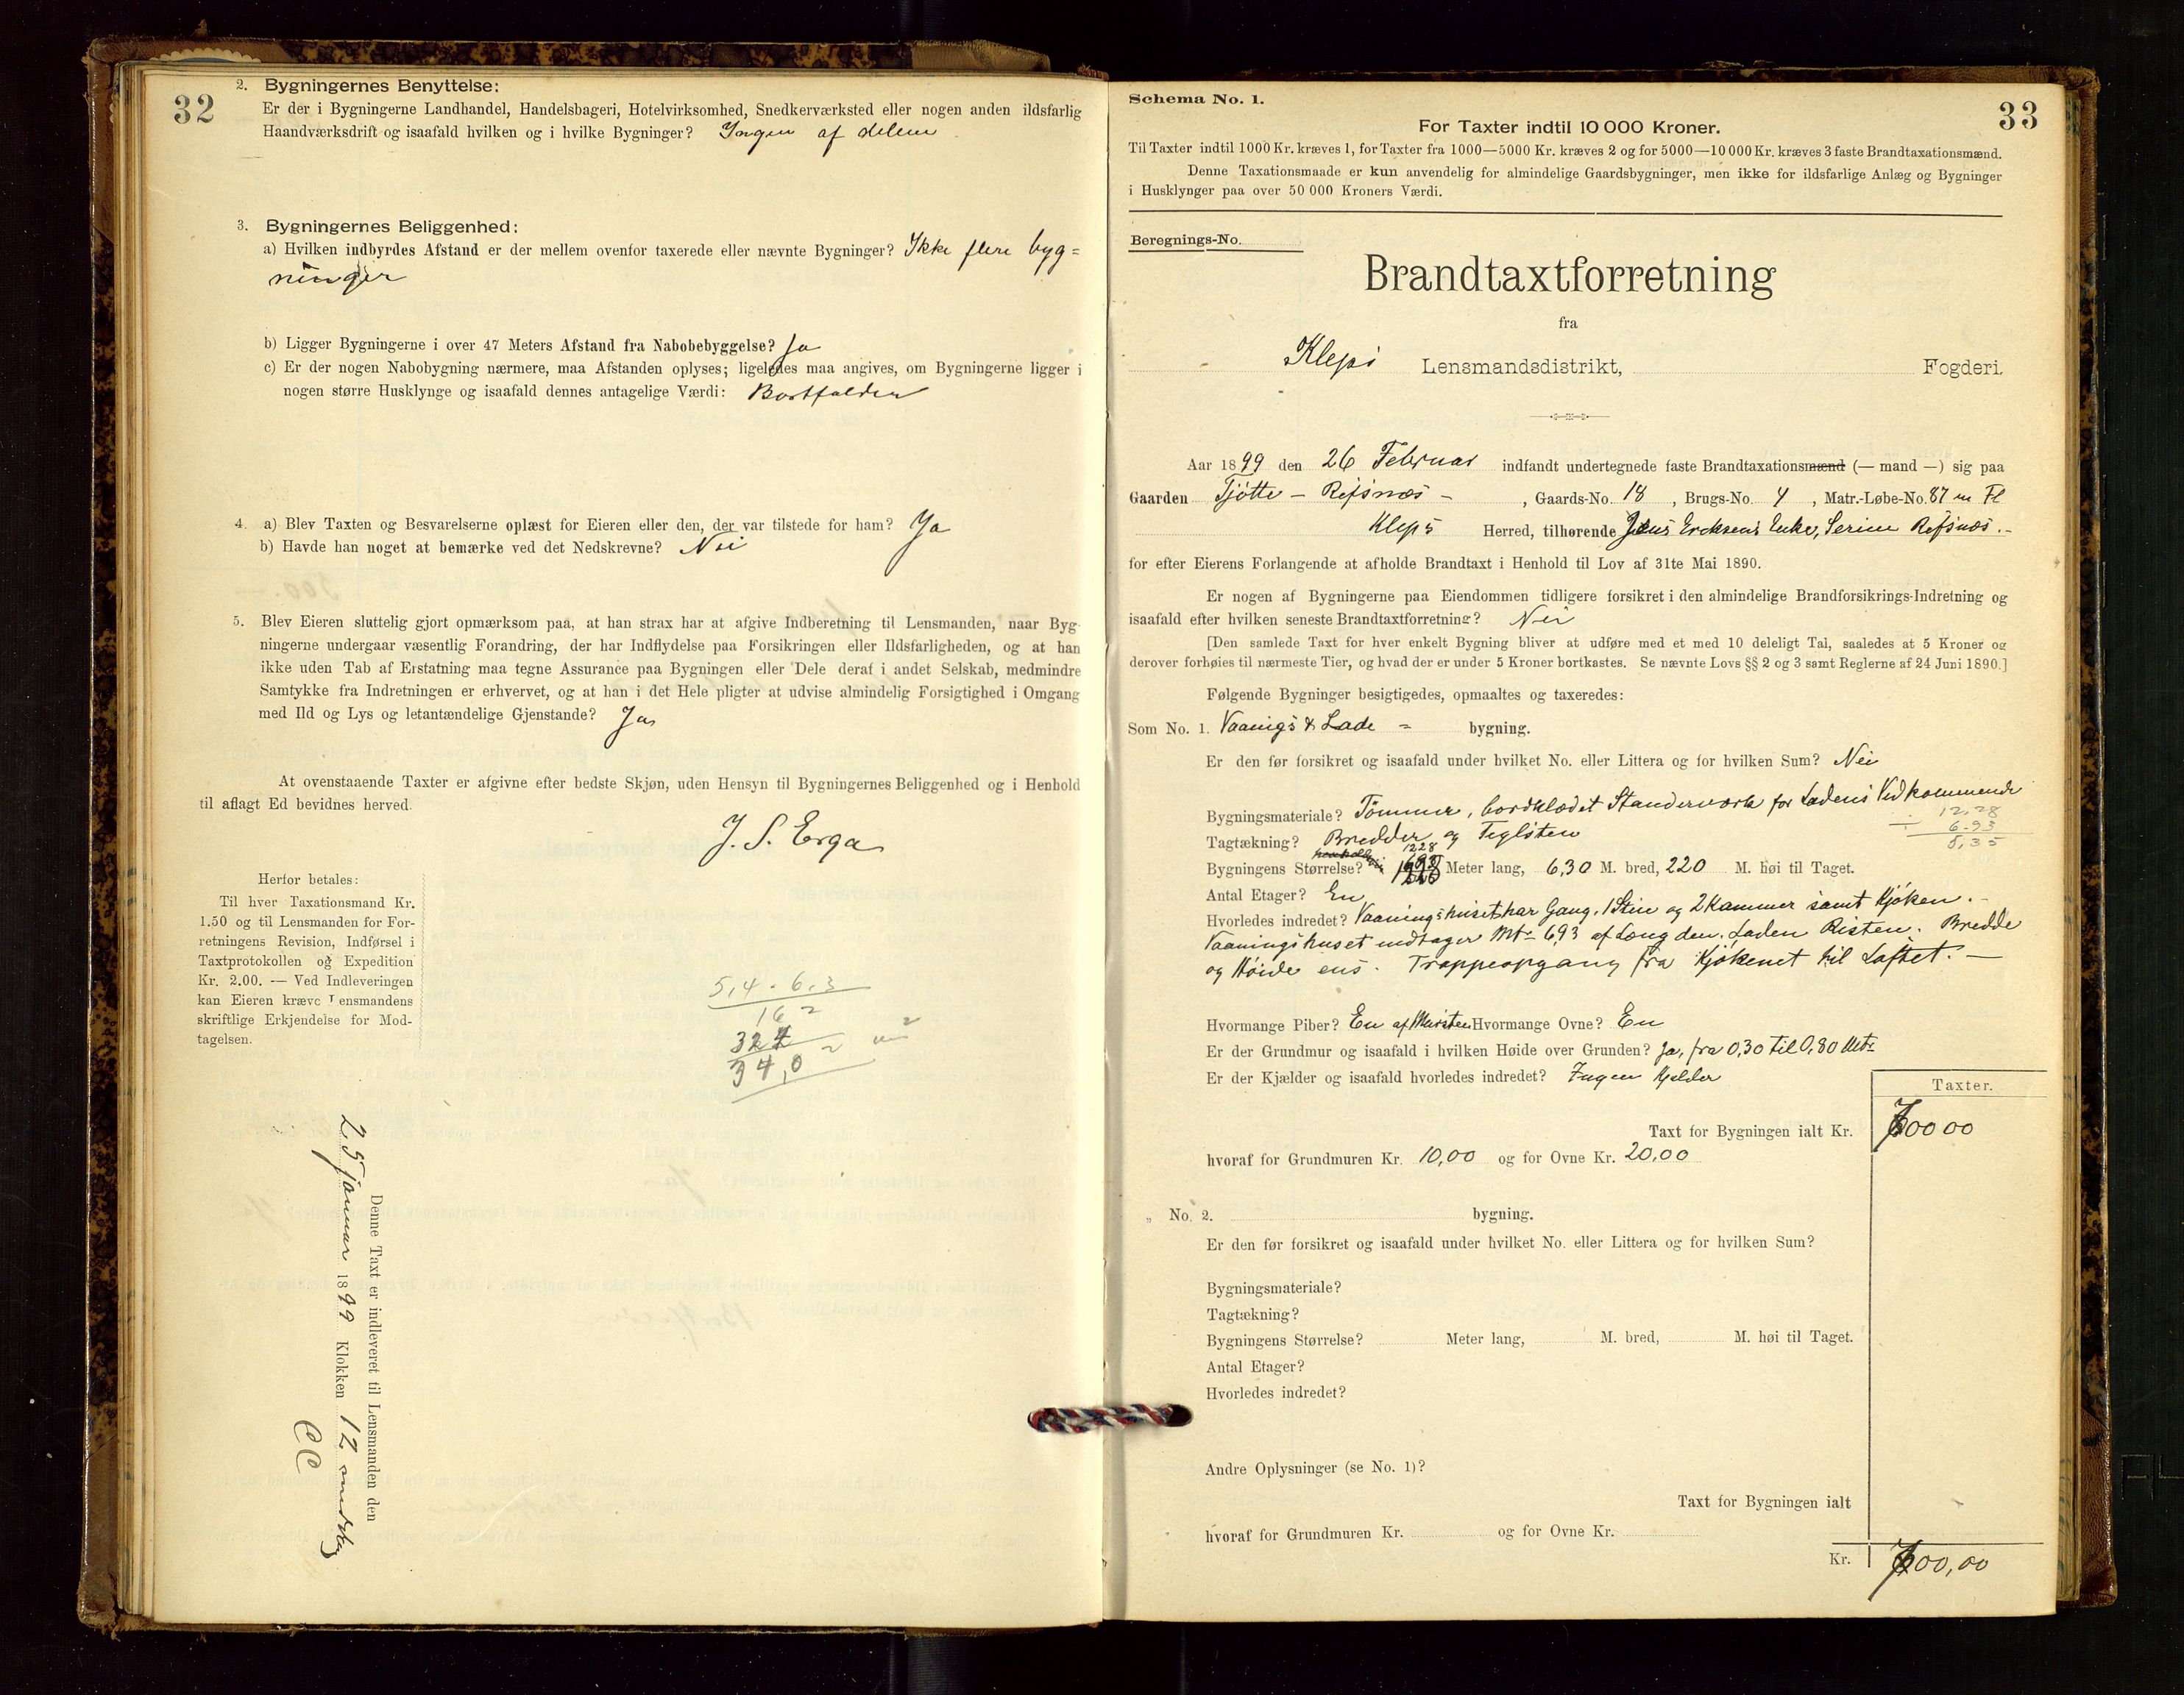 32
2. Bygningernes Benyttelse:
Er der i Bygningerne Landhandel, Handelsbageri, Hotelvirksomhed, Snedkerværksted eller nogen anden ildsfarlig
Haandværksdrift og isaafald hvilken og i hvilke Bygninger? Ingen af delene
3. Bygningernes Beliggenhed:
a) Hvilken indbyrdes Afstand er der mellem ovenfor taxerede eller nævnte Bygninger? Ikke flere byg=
ninger
b) Ligger Bygningerne i over 47 Meters Afstand fra Nabobebyggelse? Ja
c) Er der nogen Nabobygning nærmere, maa Afstanden oplyses; ligeledes maa angives, om Bygningerne ligger i
nogen større Husklynge og isaafald dennes antagelige Værdi: Bortfalder
4. a) Blev Taxten og Besvarelserne oplæst for Eieren eller den, der var tilstede for ham? Ja
b) Havde han noget at bemærke ved det Nedskrevne? Nei
5. Blev Eieren sluttelig gjort opmærksom paa, at han strax har at afgive Indberetning til Lensmanden, naar Byg-
ningerne undergaar væsentlig Forandring, der har Indflydelse paa Forsikringen eller Ildsfarligheden, og at han
ikke uden Tab af Erstatning maa tegne Assurance paa Bygningen eller Dele deraf i andet Selskab, medmindre
Samtykke fra Indretningen er erhvervet, og at han i det Hele pligter at udvise almindelig Forsigtighed i Omgang
med Ild og Lys og letantændelige Gjenstande? Ja
At ovenstaaende Taxter er afgivne efter bedste Skjøn, uden Hensyn til Bygningernes Beliggenhed og i Henhold
til aflagt Ed bevidnes herved.
J. S. Erga
Herfor betales:
Til hver Taxationsmand Kr.
1.50 og til Lensmanden for For-
retningens Revision, Indførsel i
Taxtprotokollen og Expedition
Kr. 2.00. — Ved Indleveringen
kan Eieren kræve Lensmandens
skriftlige Erkjendelse for Mod-
tagelsen.
5,4 . 6,3
162
324
34,02 m²
Denne Taxt er indleveret til Lensmanden den
25 januar 1899 Klokken 12 middag
33
Schema No. 1.
For Taxter indtil 10 000 Kroner.
Til Taxter indtil 1000 Kr. kræves 1, for Taxter fra 1000—5000 Kr. kræves 2 og for 5000—10 000 Kr. kræves 3 faste Brandtaxationsmænd.
Denne Taxationsmaade er kun anvendelig for almindelige Gaardsbygninger, men ikke for ildsfarlige Anlæg og Bygninger
i Husklynger paa over 50 000 Kroners Værdi.
Beregnings-No.
Brandtaxtforretning
fra
Klep's Lensmandsdistrikt, Fogderi.
Aar 1899 den 26 Februar indfandt undertegnede faste Brandtaxationsmænd (— mand —) sig paa
Gaarden Tjøtte - Refsnæs - , Gaards-No. 18 , Brugs-No. 4 , Matr.-Løbe-No. 87 m Fl
Klep's Herred, tilhørende Jens Ericksens Enke, Serine Refsnæs.-
for efter Eierens Forlangende at afholde Brandtaxt i Henhold til Lov af 31te Mai 1890.
Er nogen af Bygningerne paa Eiendommen tidligere forsikret i den almindelige Brandforsikrings-Indretning og
isaafald efter hvilken seneste Brandtaxtforretning? Nei
[Den samlede Taxt for hver enkelt Bygning bliver at udføre med et med 10 deleligt Tal, saaledes at 5 Kroner og
derover forhøies til nærmeste Tier, og hvad der er under 5 Kroner bortkastes. Se nævnte Lovs §§ 2 og 3 samt Reglerne af 24 Juni 1890.]
Følgende Bygninger besigtigedes, opmaaltes og taxeredes:
Som No. 1. Vaanigs & Lade - bygning.
Er den før forsikret og isaafald under hvilket No. eller Littera og for hvilken Sum? Nei
Bygningsmateriale? Tømmer, bordklædet Standerværk for Ladens Vedkommende
12,28
÷ 6.93
5,35
Tagtækning? Bredder og Teglsten
Bygningens Størrelse? 12.28 Meter lang, 6,30 M. bred, 220 M. høi til Taget.
Antal Etager? En
Hvorledes indredet? Vaaningshuset har Gang, 1 Stue og 2 Kammer samt Kjøken.-
Vaaningshuset indtager Mtr 6,93 af Længden. Laden Resten. Bredde
og Høide ens. Trappeopgang fra Kjøkenet til Loftet. —
Hvormange Piber? En af Mursten Hvormange Ovne? En
Er der Grundmur og isaafald i hvilken Høide over Grunden? Ja, fra 0,30 til 0,80 Mtr
Er der Kjælder og isaafald hvorledes indredet? Ingen Kjelder
Taxter.
Taxt for Bygningen ialt Kr. 700 00
hvoraf for Grundmuren Kr. 10,00 og for Ovne Kr. 20,00
„ No. 2. bygning.
Er den før forsikret og isaafald under hvilket No. eller Littera og for hvilken Sum?
Bygningsmateriale?
Tagtækning?
Bygningens Størrelse? Meter lang, M. bred, M. høi til Taget.
Antal Etager?
Hvorledes indredet?
Andre Oplysninger (se No. 1)?
Taxt for Bygningen ialt
hvoraf for Grundmuren Kr. og for Ovne Kr.
Kr. 700,00